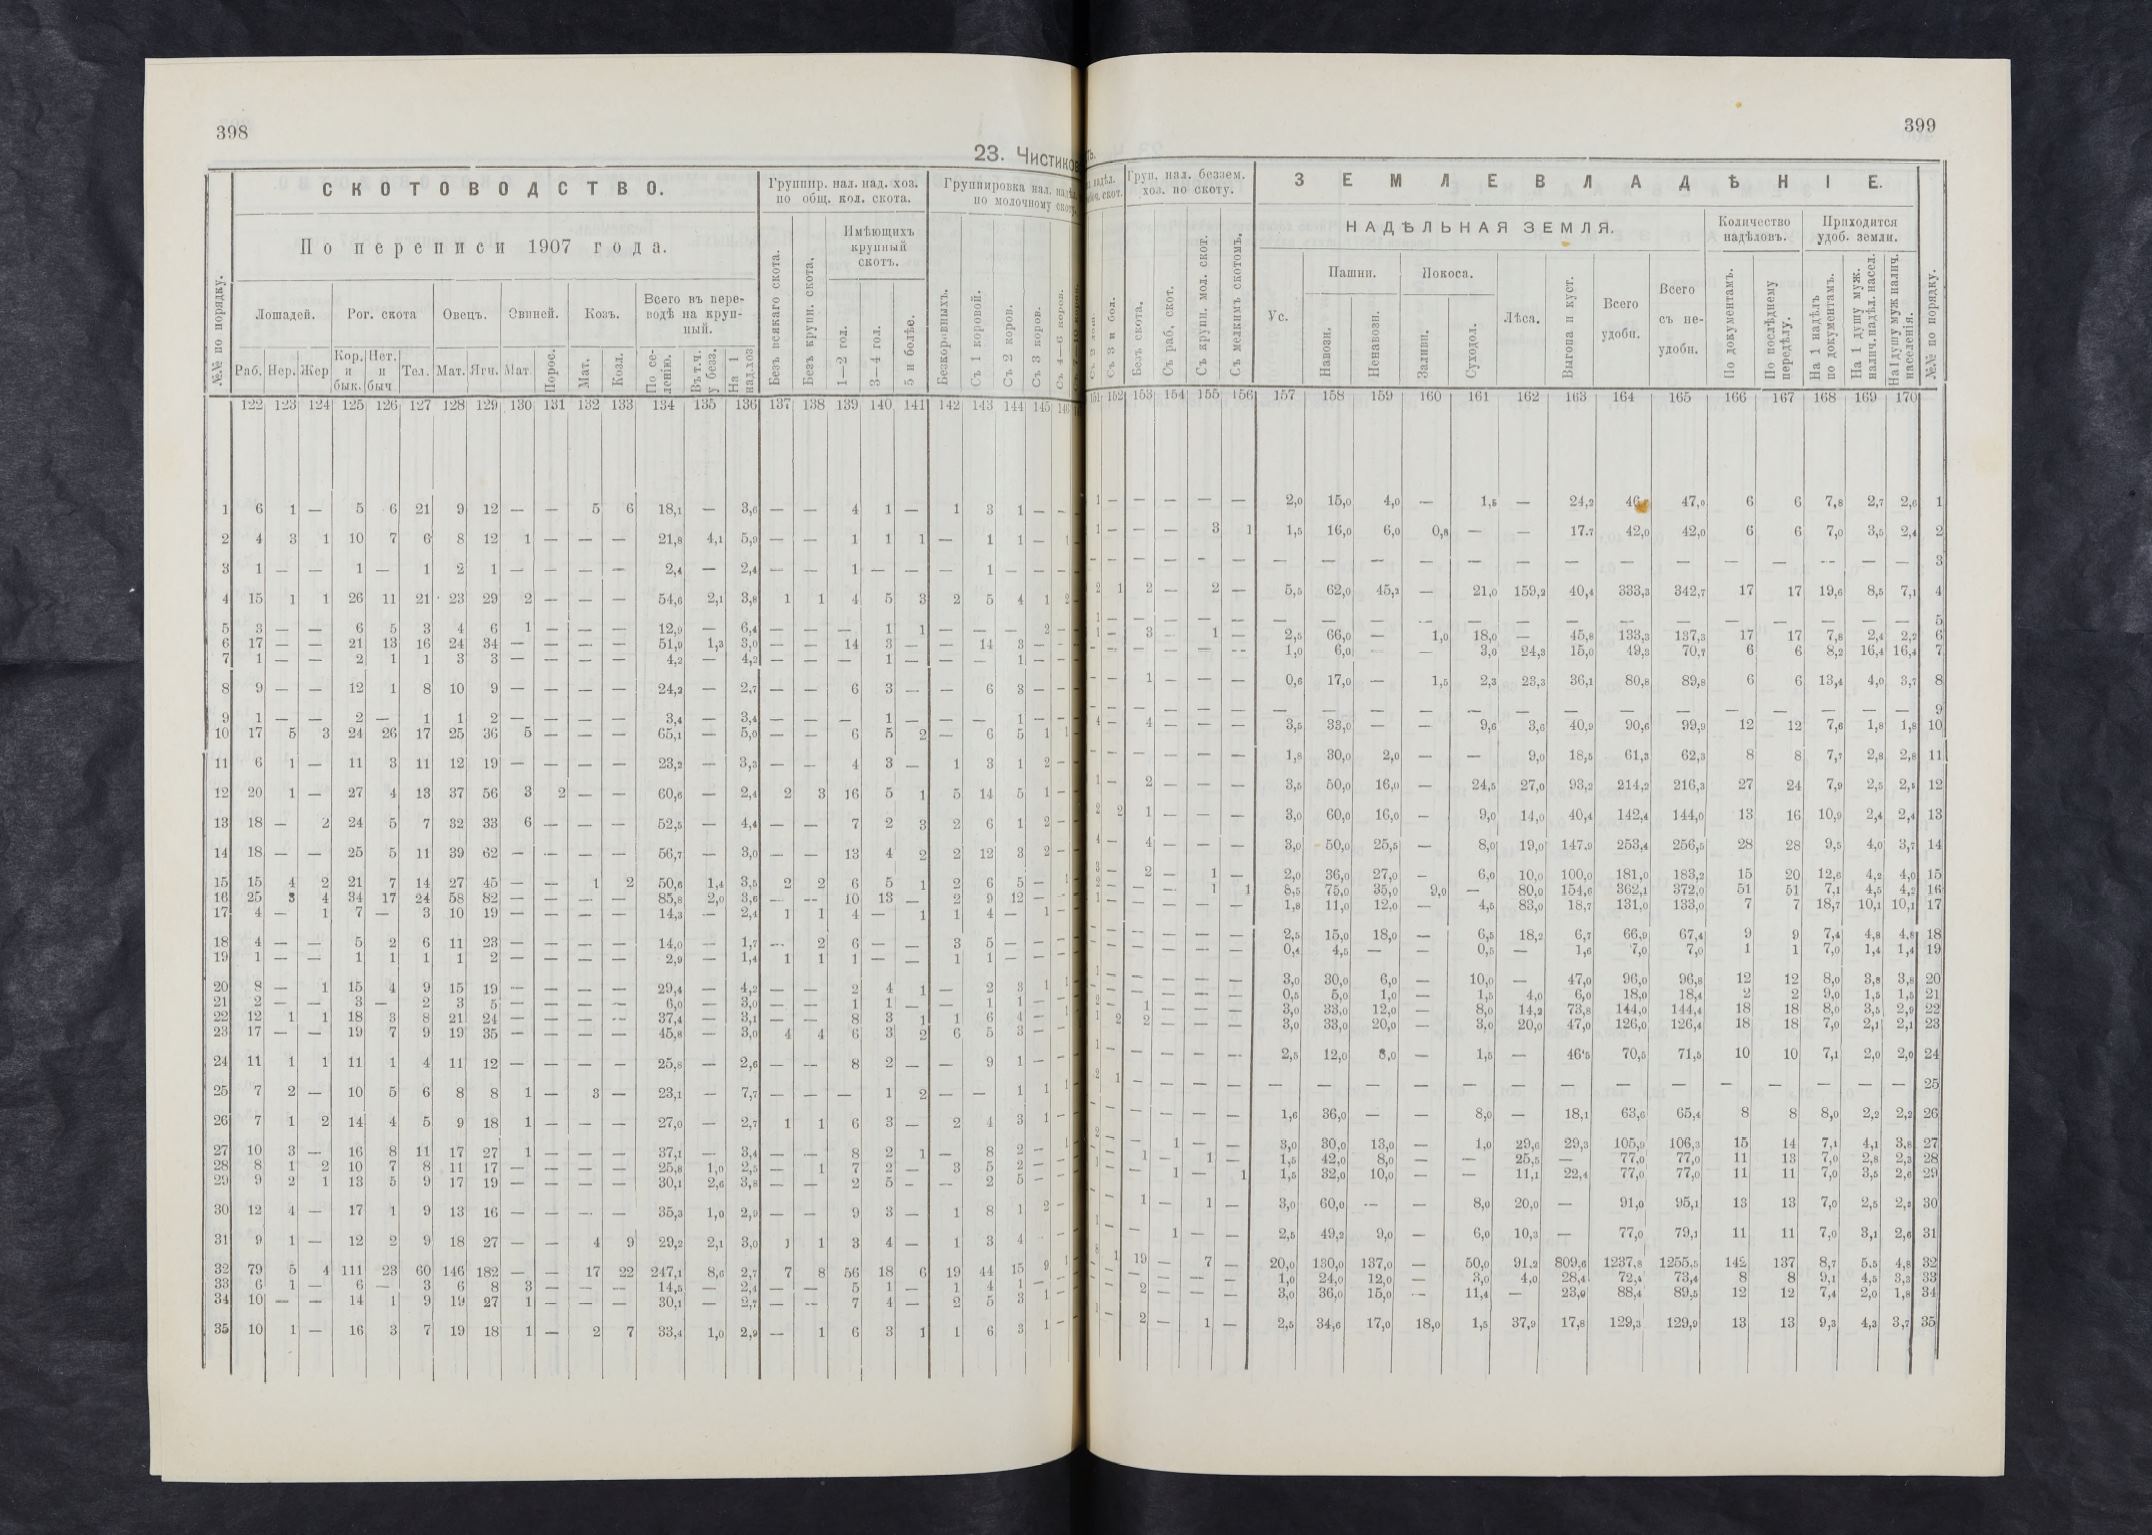 398
23. Чистиков
СКОТОВОДСТВО.
По переписи 1907 года.
№№ по порядку.
Лошадей. Рог. скота Овецъ. Свиней. Козъ. Всего въ переводѣ на крупный.
Раб. Нер. Жер Кор. и бык. Нет. и быч Тел. Мат. Ягн. Мат Порос. Мат. Козл. По селенію. Въ т.ч. у безз. На 1 над.хоз
Группир. нал. над. хоз. по общ. кол. скота.
Безъ всякаго скота. Безъ крупн. скота. Имѣющихъ крупный скотъ. 1—2 гол. 3—4 гол. 5 и болѣе.
Группировка нал. надѣл. по молочному скоту.
Безкоровныхъ. Съ 1 коровой. Съ 2 коров. Съ 3 коров. Съ 4—6 коров.
122 123 124 125 126 127 128 129 130 131 132 133 134 135 136 137 138 139 140 141 142 143 144 145 146
1 6 1 — 5 6 21 9 12 — — 5 6 18,1 — 3,6 — — 4 1 — 1 3 1 — —
2 4 3 1 10 7 6 8 12 1 — — — 21,8 4,1 5,9 — — 1 1 1 — 1 1 — 1
3 1 — — 1 — 1 2 1 — — — — 2,4 — 2,4 — — 1 — — — 1 — — —
4 15 1 1 26 11 21 23 29 2 — — — 54,6 2,1 3,8 1 1 4 5 3 2 5 4 1 2
5 3 — — 6 5 3 4 6 1 — — — 12,9 — 6,4 — — — 1 1 — — — 2 —
6 17 — — 21 13 16 24 34 — — — — 51,9 1,3 3,0 — — 14 3 — — 14 3 — —
7 1 — — 2 1 1 3 3 — — — — 4,2 — 4,2 — — — 1 — — — 1 — —
8 9 — — 12 1 8 10 9 — — — — 24,2 — 2,7 — — 6 3 — — 6 3 — —
9 1 — — 2 — 1 1 2 — — — — 3,4 — 3,4 — — — 1 — — — 1 — —
10 17 5 3 24 26 17 25 36 5 — — — 65,1 — 5,0 — — 6 5 2 — 6 5 1 1
11 6 1 — 11 3 11 12 19 — — — — 23,2 — 3,3 — — 4 3 — 1 3 1 2 —
12 20 1 — 27 4 13 37 56 3 2 — — 60,6 — 2,4 2 3 16 5 1 5 14 5 1 —
13 18 — 2 24 5 7 32 33 6 — — — 52,5 — 4,4 — — 7 2 3 2 6 1 2 —
14 18 — — 25 5 11 39 62 — — — — 56,7 — 3,0 — — 13 4 2 2 12 3 2 —
15 15 4 2 21 7 14 27 45 — — 1 2 50,6 1,4 3,5 2 2 6 5 1 2 6 5 — 1
16 25 3 4 34 17 24 58 82 — — — — 85,8 2,0 3,6 — — 10 13 — 2 9 12 — —
17 4 — 1 7 — 3 10 19 — — — — 14,3 — 2,4 1 1 4 — 1 1 4 — 1 —
18 4 — — 5 2 6 11 23 — — — — 14,0 — 1,7 — 2 6 — — 3 5 — — —
19 1 — — 1 1 1 1 2 — — — — 2,9 — 1,4 1 1 1 — — 1 1 — — —
20 8 — 1 15 4 9 15 19 — — — — 29,4 — 4,2 — — 2 4 1 — 2 3 1 1
21 2 — — 3 — 2 3 5 — — — — 6,0 — 3,0 — — 1 1 — — 1 1 — —
22 12 1 1 18 3 8 21 24 — — — — 37,4 — 3,1 — — 8 3 1 1 6 4 — 1
23 17 — — 19 7 9 19 35 — — — — 45,8 — 3,0 4 4 6 3 2 6 5 3 — —
24 11 1 1 11 1 4 11 12 — — — — 25,8 — 2,6 — — 8 2 — — 9 1 — —
25 7 2 — 10 5 6 8 8 1 — 3 — 23,1 — 7,7 — — — 1 2 — — 1 1 1
26 7 1 2 14 4 5 9 18 1 — — — 27,0 — 2,7 1 1 6 3 — 2 4 3 1 —
27 10 3 — 16 8 11 17 27 1 — — — 37,1 — 3,4 — — 8 2 1 — 8 2 — 1
28 8 1 2 10 7 8 11 17 — — — — 25,8 1,0 2,5 — 1 7 2 — 3 5 2 — —
29 9 2 1 13 5 9 17 19 — — — — 30,1 2,6 3,8 — — 2 5 — — 2 5 — —
30 12 4 — 17 1 9 13 16 — — — — 35,3 1,0 2,9 — — 9 3 — 1 8 1 2 —
31 9 1 — 12 2 9 18 27 — — 4 9 29,2 2,1 3,0 1 1 3 4 — 1 3 4 — —
32 79 5 4 111 23 60 146 182 — — 17 22 247,1 8,6 2,7 7 8 56 18 6 19 44 15 9 1
33 6 1 — 6 — 3 6 8 3 — — — 14,5 — 2,4 — — 5 1 — 1 4 1 — —
34 10 — — 14 1 9 19 27 1 — — — 30,1 — 2,7 — — 7 4 — 2 5 3 1 —
35 10 1 — 16 3 7 19 18 1 — 2 7 33,4 1,0 2,9 — 1 6 3 1 1 6 3 1 —
399
Груп. нал. беззем. хоз. по скоту.
Съ 3 и бол. Безъ скота. Съ раб. скот. Съ крупн. мол. скот. Съ мелкимъ скотомъ.
ЗЕМЛЕВЛАДѢНІЕ.
НАДѢЛЬНАЯ ЗЕМЛЯ.
Количество надѣловъ. Приходится удоб. земли.
Ус. Пашни. Навозн. Ненавозн. Покоса. Заливн. Суходол. Лѣса. Выгона и куст. Всего удобн. Всего съ неудобн.
По документамъ. По послѣднему передѣлу. На 1 надѣлъ по документамъ. На 1 душу муж. налич. надѣл. насел. На 1 душу муж налич. населенія. №№ по порядку.
151 152 153 154 155 156 157 158 159 160 161 162 163 164 165 166 167 168 169 170
1 — — — — — 2,0 15,0 4,0 — 1,5 — 24,2 47,0 6 6 7,8 2,7 2,6 1
1 — — — 3 1 1,5 16,0 6,0 0,8 — — 17.7 42,0 42,0 6 6 7,0 3,5 2,4 2
— — — — — — — — — — — — — — — — — — — — 3
2 1 2 — 2 — 5,5 62,0 45,2 — 21,0 159,2 40,4 333,3 342,7 17 17 19,6 8,5 7,1 4
1 — — — — — — — — — — — — — — — — — — — 5
1 — 3 — 1 — 2,5 66,0 — 1,0 18,0 — 45,8 133,3 137,3 17 17 7,8 2,4 2,2 6
— — — — — — 1,0 6,0 — — 3,0 24,3 15,0 49,3 70,7 6 6 8,2 16,4 16,4 7
— — 1 — — — 0,6 17,0 — 1,5 2,3 23,3 36,1 80,8 89,8 6 6 13,4 4,0 3,7 8
— — — — — — — — — — — — — — — — — — — — 9
4 — 4 — — — 3,5 33,0 — — 9,6 3,6 40,9 90,6 99,9 12 12 7,6 1,8 1,8 10
— — — — — — 1,8 30,0 2,0 — — 9,0 18,5 61,3 62,3 8 8 7,7 2,8 2,8 11
1 — 2 — — — 3,5 50,0 16,0 — 24,5 27,0 93,2 214,2 216,3 27 24 7,9 2,5 2,5 12
2 2 1 — — — 3,0 60,0 16,0 — 9,0 14,0 40,4 142,4 144,0 13 16 10,9 2,4 2,4 13
4 — 4 — — — 3,0 50,0 25,5 — 8,0 19,0 147.9 253,4 256,5 28 28 9,5 4,0 3,7 14
3 — 2 — 1 — 2,0 36,0 27,0 — 6,0 10,0 100,0 181,0 183,2 15 20 12,6 4,2 4,0 15
2 — — — 1 1 8,5 75,0 35,0 9,0 — 80,0 154,6 362,1 372,0 51 51 7,1 4,5 4,2 16
1 — — — — — 1,8 11,0 12,0 — 4,5 83,0 18,7 131,0 133,0 7 7 18,7 10,1 10,1 17
— — — — — — 2,5 15,0 18,0 — 6,5 18,2 6,7 66,9 67,4 9 9 7,4 4,8 4,8 18
— — — — — — 0,4 4,5 — — 0,5 — 1,6 7,0 7,0 1 1 7,0 1,4 1,4 19
1 — — — — — 3,0 30,0 6,0 — 10,0 — 47,0 96,0 96,8 12 12 8,0 3,8 3,8 20
— — — — — — 0,5 5,0 1,0 — 1,5 4,0 6,0 18,0 18,4 2 2 9,0 1,5 1,5 21
2 — 1 — — — 3,0 33,0 12,0 — 8,0 14,2 73,8 144,0 144,4 18 18 8,0 3,5 2,9 22
1 2 2 — — — 3,0 33,0 20,0 — 3,0 20,0 47,0 126,0 126,4 18 18 7,0 2,1 2,1 23
1 — — — — — 2,5 12,0 8,0 — 1,5 — 46'5 70,5 71,5 10 10 7,1 2,0 2,0 24
2 1 — — — — — — — — — — — — — — — — — — 25
— — — — — — 1,6 36,0 — — 8,0 — 18,1 63,6 65,4 8 8 8,0 2,2 2,2 26
2 — — 1 — — 3,0 30,0 13,0 — 1,0 29,6 29,3 105,9 106,3 15 14 7,1 4,1 3,8 27
— — 1 — 1 — 1,5 42,0 8,0 — — 25,5 — 77,0 77,0 11 13 7,0 2,8 2,3 28
1 — — 1 — 1 1,5 32,0 10,0 — — 11,1 22,4 77,0 77,0 11 11 7,0 3,5 2,6 29
— — 1 — 1 — 3,0 60,0 — — 8,0 20,0 — 91,0 95,1 13 13 7,0 2,5 2,5 30
1 — — 1 — — 2,5 49,2 9,0 — 6,0 10,3 — 77,0 79,1 11 11 7,0 3,1 2,6 31
8 1 19 — 7 — 20,0 130,0 137,0 — 50,0 91.2 809,6 1237,8 1255.5 142 137 8,7 5.5 4,8 32
— — — — — — 1,0 24,0 12,0 — 3,0 4,0 28,4 72,4 73,4 8 8 9,1 4,5 3,3 33
— — 2 — — — 3,0 36,0 15,0 — 11,4 — 23,0 88,4 89,5 12 12 7,4 2,0 1,8 34
1 — 2 — 1 — 2,5 34,6 17,0 18,0 1,5 37,9 17,8 129,3 129,9 13 13 9,3 4,3 3,7 35